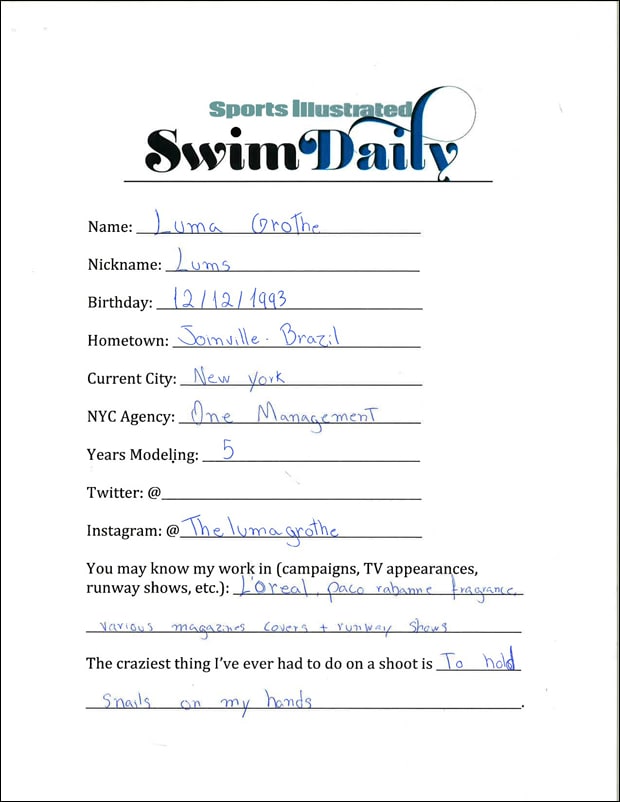 Sports Illustrated
Swim Daily
Name: Luma Grothe
Nickname: Lums
Birthday: 12/12/1993
Hometown: Joinville - Brazil
Current City: New York
NYC Agency: One Management
Years Modeling: 5
Twitter: @
Instagram: @Thelumagrothe
You may know my work in (campaigns, TV appearances,
runway shows, etc.): L'Oreal, paco rabanne fragrance,
various magazines covers + runway shows
The craziest thing I've ever had to do on a shoot is To hold
snails on my hands.